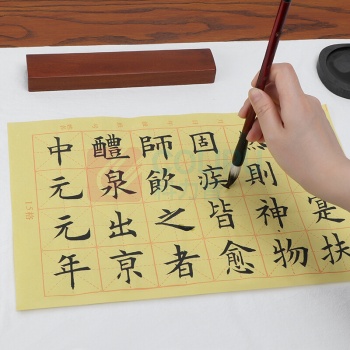 中元元年
醴泉出亰
師飲之者
固疾皆愈
然則神物
寔扶
15格